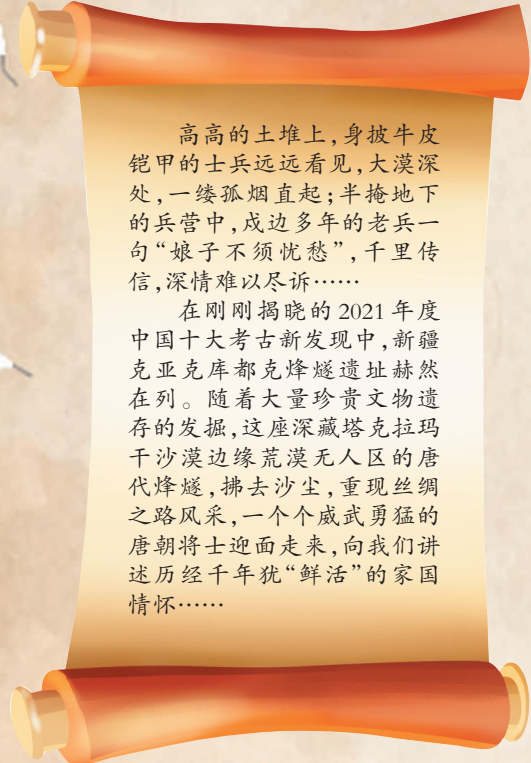 高高的土堆上，身披牛皮
铠甲的士兵远远看见，大漠深
处，一缕孤烟直起；半掩地下
的兵营中，戍边多年的老兵一
句“娘子不须忧愁”，千里传
信，深情难以尽诉……
在刚刚揭晓的2021年度
中国十大考古新发现中，新疆
克亚克库都克烽燧遗址赫然
在列。随着大量珍贵文物遗
存的发掘，这座深藏塔克拉玛
干沙漠边缘荒漠无人区的唐
代烽燧，拂去沙尘，重现丝绸
之路风采，一个个威武勇猛的
唐朝将士迎面走来，向我们讲
述历经千年犹“鲜活”的家国
情怀……